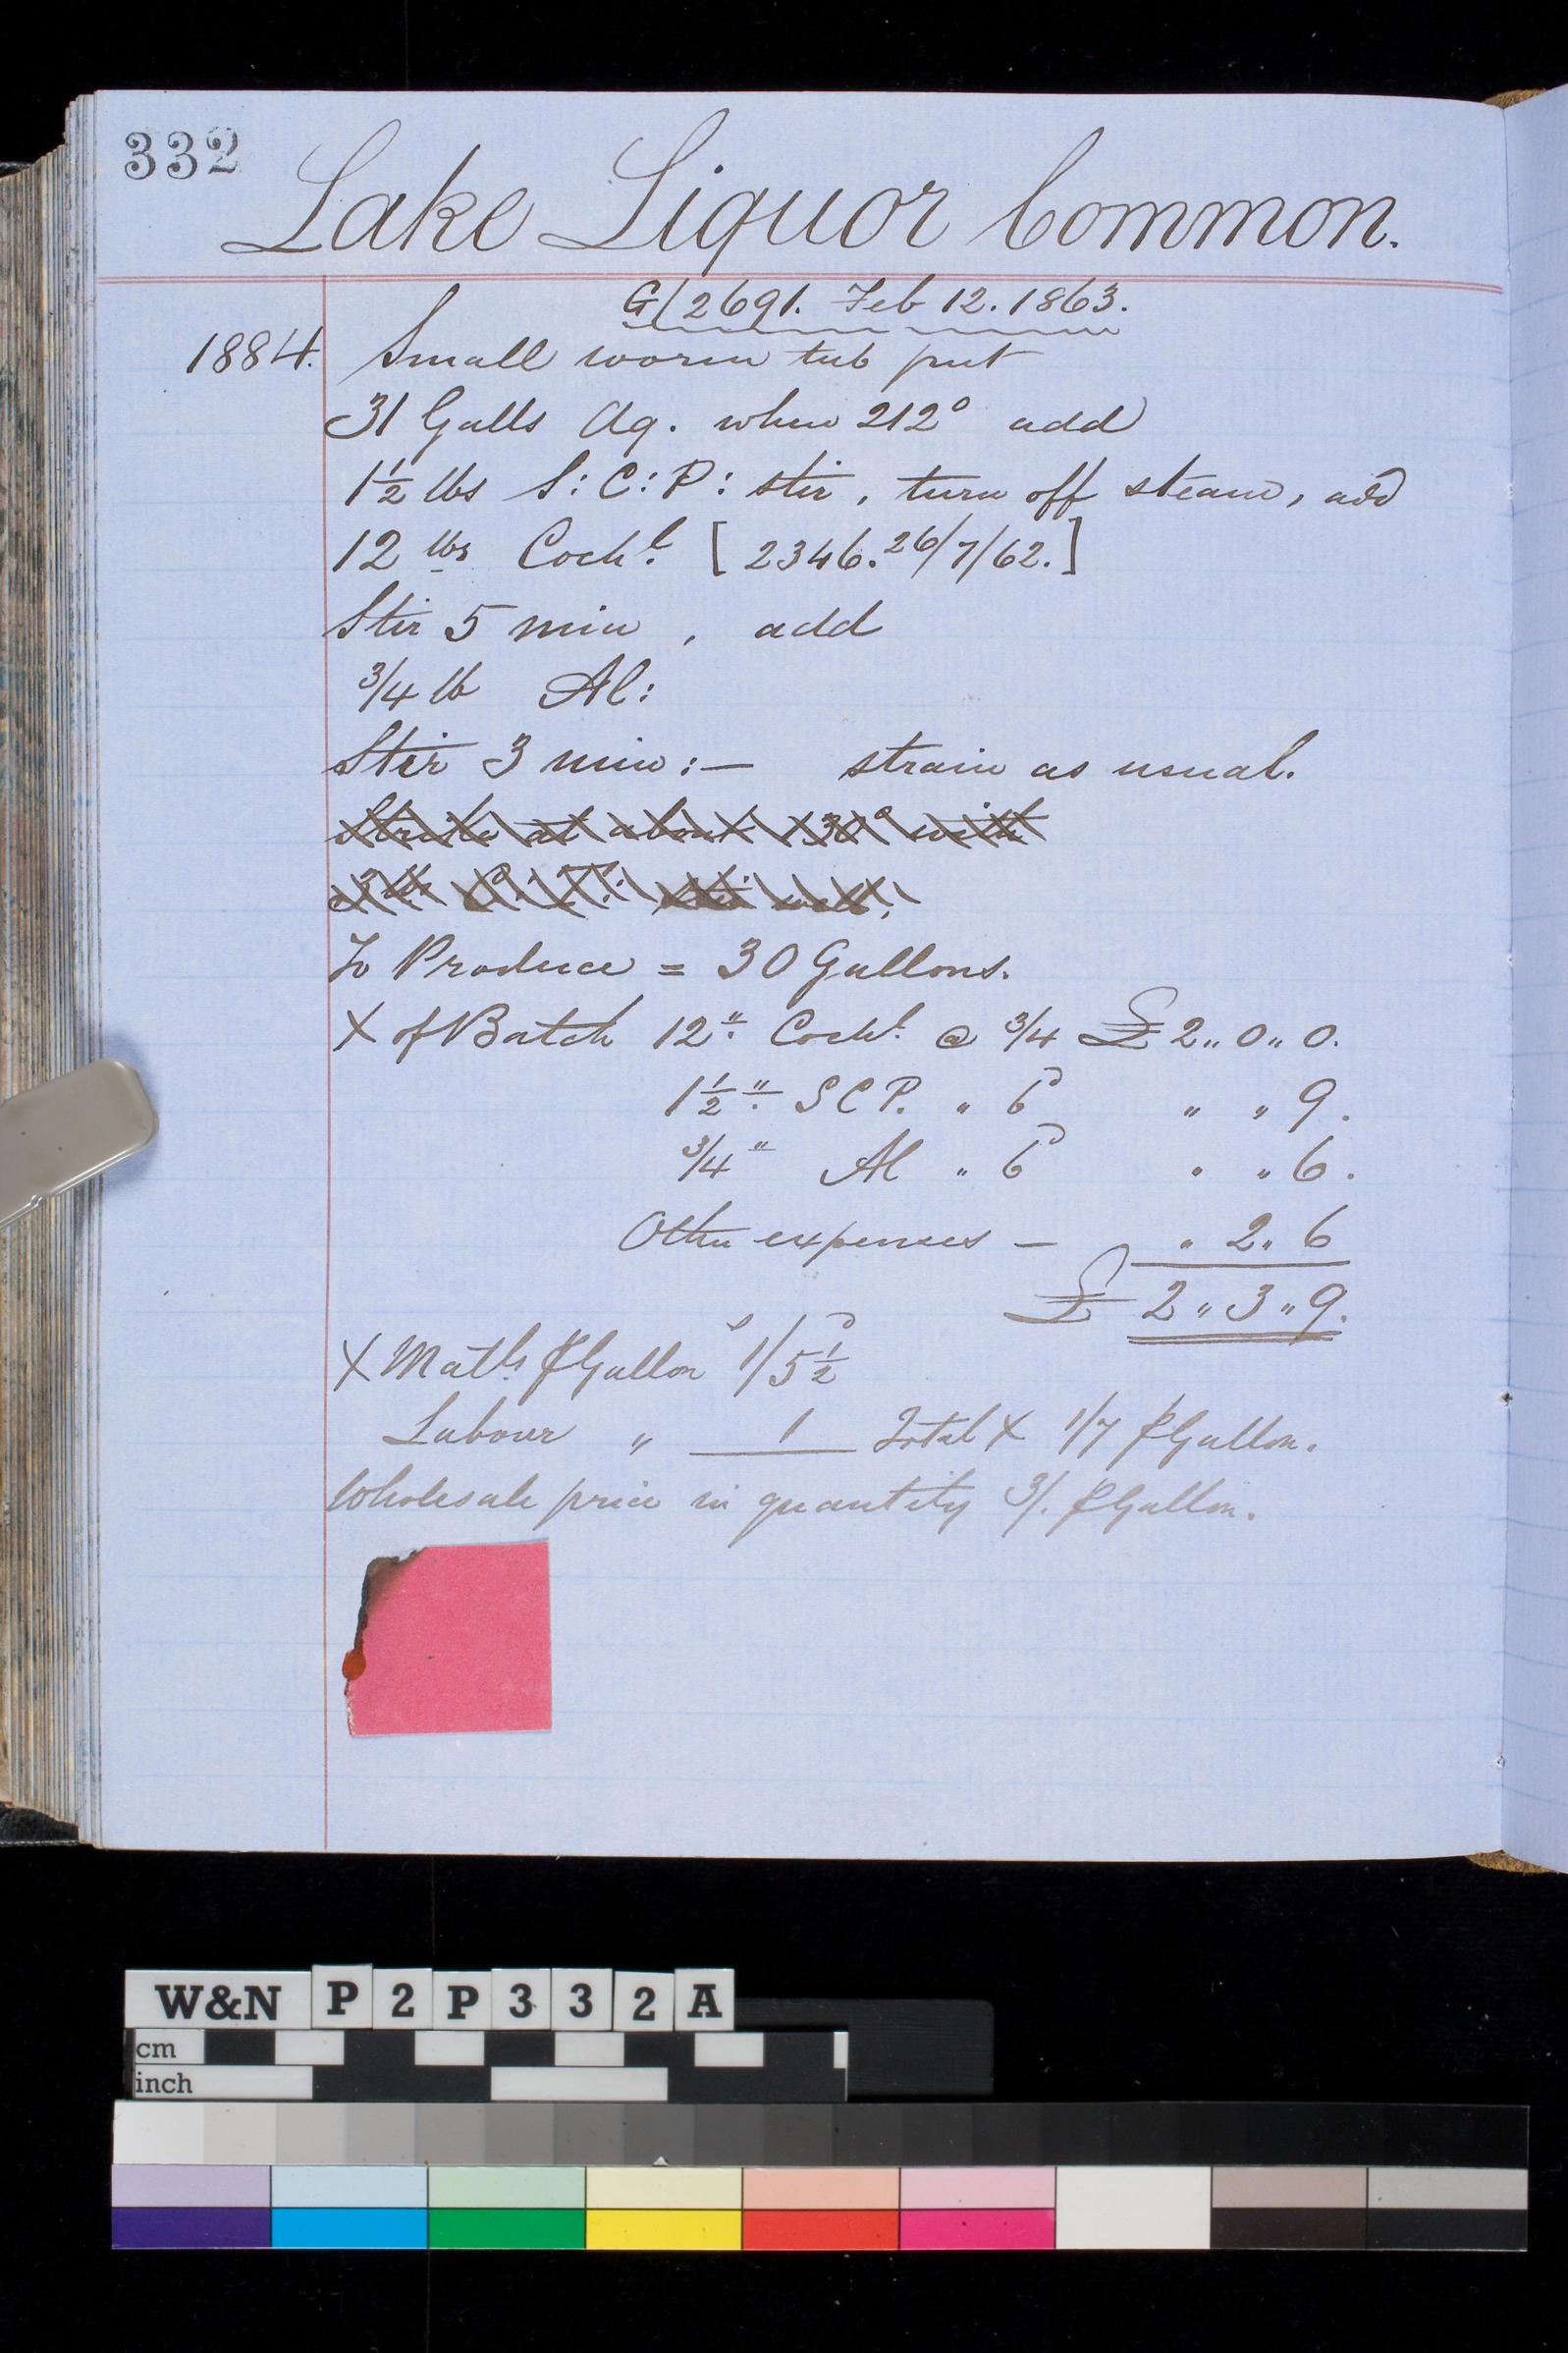 332
Lake Liquor Common.
G/2691. Feb 12. 1863.
1884. Small worm tub put
31 Galls Aq. when 212° add
1½ lbs S:C:P: stir, turn off steam, add
12 lbs Cochl. [2346. 26/7/62.]
Stir 5 min, add
3/4 lb Al:
Stir 3 min:— strain as usual.
Strike at about 130° with
To Produce = 30 Gallons.
X of Batch 12 " Cochl. @ 3/4 £2 " 0 " 0.
1½ " SCP. " 6d " " 9.
3/4 " Al " 6d " " 6.
Other expenses — " 2 " 6
£ 2 " 3 " 9.
X Matls. ⅌ Gallon s 1/5½ d
Labour " 1 Total X 1/7 ⅌ Gallon.
Wholesale price in quantity 3/. ⅌ Gallon.
W&N P2P332A
cm
inch